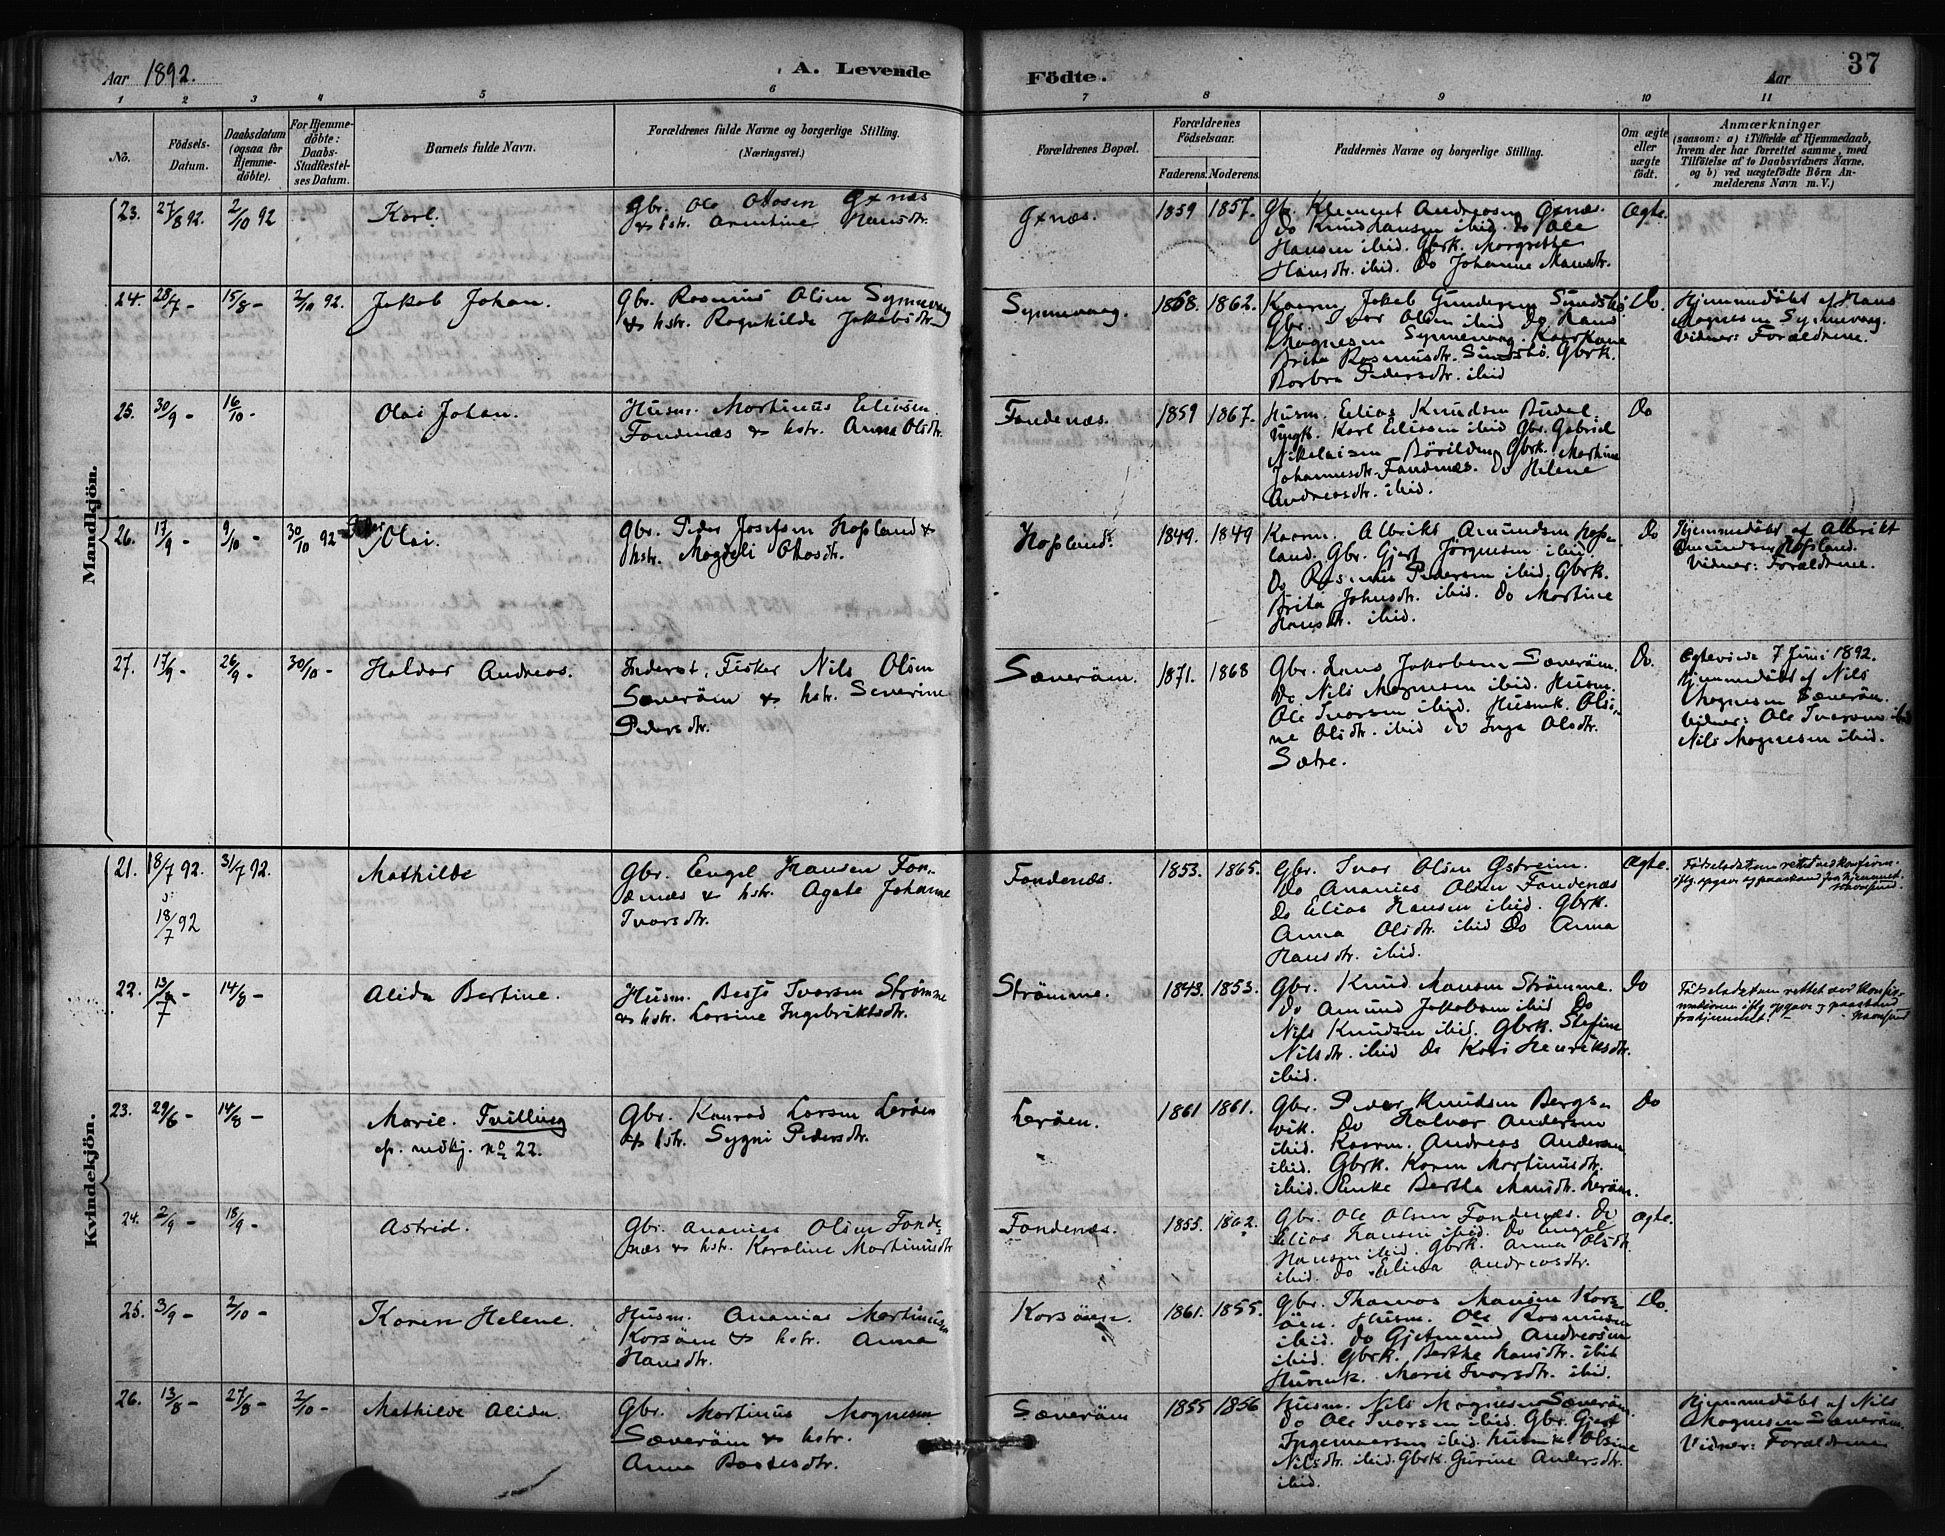 Aar 1892.
A. Levende
Födte.
Aar
37
1 2 3 4 5 6 7 8 9 10 11
No.
Födsels-
Datum.
Daabsdatum
(ogsaa for
Hjemme-
döbte).
For Hjemme-
döbte:
Daabs-
Stadfestel-
ses Datum.
Barnets fulde Navn.
Forældrenes fulde Navne og borgerlige Stilling.
(Næringsvei.)
Forældrenes Bopæl.
Forældrenes
Födselsaar.
Faderens. Moderens.
Faddernes Navne og borgerlige Stilling.
Om ægte
eller
uægte
födt.
Anmærkninger
(saasom: a) i Tilfælde af Hjemmedaab,
hvem der har forrettet samme, med
Tilföielse af to Daabsvidners Navne,
og b) ved uægtefödte Börn An-
melderens Navn m. V.)
Mandkjön.
23. 27/8 92. 2/10 92 Karl.
Gbr. Ole Olosen Gxnæs
& hstr. Hansdtr.
Gxnæs.
1859 1857.
Gbr. Klement Andreasen Gxnæs.
Do Knud Hansen ibid. Do Ole
Hansen ibid. Gbrk. Margrethe
Hansdtr. ibid. Do Johanne Mansdtr.
Ægte.
24. 28/7 - 15/8 - 2/10 92. Jakob Johan.
Gbr. Rasmus Olsen Synnevaag
& hstr. Ragnhilde Jakobsdtr.
Synnevaag.
1858. 1862.
Kaarm. Jakob Gundersen Sundsbö
Gbr. Ivar Olsen ibid Do Hans
Magnesen Synnevaag. Kaarkone
Brita Rasmusdtr. Sundsbö. Gbrk.
Barbra Pedersdtr. ibid
Do.
Hjemmedöbt af Hans
Magnesen Synnevaag.
Vidner: Forældrene.
25. 30/9 - 16/10 - Olai Johan.
Husm. Martinus Eliasen
Fondenæs & hstr. Anna Olsdtr.
Fondenæs.
1859 1867.
Husm. Elias Knudsen
Ungk. Karl Eliasen ibid Gbr. Gabriel
Nikolaisen Gbrk. Martine
Johannesdtr. Fondenæs. Do Helene
Andreasdtr. ibid.
Do
26. 17/9 - 9/10 - 30/10 92 Olai.
Gbr. Peder Josefsen Hofsland &
hstr. Magdeli Olosdtr.
Hofsland.
1849. 1849
Kaarm. Albrikt Amundsen Hofs-
land. Gbr. Gjert Jörgensen ibid.
Do Rasmus Pedersen ibid. Gbrk.
Brita Johnsdtr. ibid. Do Martine
Hansdtr. ibid.
Do
Hjemmedöbt af Albrikt
Amundsen Hofsland.
Vidner: Forældrene.
27. 17/9 - 26/9 - 30/10 - Haldor Andreas.
Inderst, Fisker Nils Olsen
Sæveröen & hstr. Severine
Pedersdtr.
Sæveröen.
1871. 1868
Gbr. Hans Jakobsen Sæveröen.
Do Nils Magnesen ibid. Husm.
Ole Ivarsen ibid. Husmk. Olsi-
ne Olsdtr. ibid Do Inga Olsdtr.
Sætre.
Do.
Ægteviede 7 Juni 1892.
Hjemmedöbt af Nils
Magnesen Sæveröen.
Vidner: Ole Ivarsen ibid
Nils Magnesen ibid.
Kvindekjön.
21. 18/7 92. 31/7 92. Mathilde
18/7 92
Gbr. Engel Hansen Fon-
denæs & hstr. Agate Johanne
Ivarsdtr.
Fondenæs.
1853. 1865.
Gbr. Ivar Olsen Østreim.
Do Ananias Olsen Fondenæs
Do Elias Hansen ibid. Gbrk.
Anna Olsdtr. ibid Do Anna
Hansdtr. ibid.
Ægte.
Födselsdatum rettet ved konfirm.
iflg. opgave og paastand fra hjemmet.
22. 13/7 - 14/8 - Alida Bertine.
Husm. Ivarsen Strömme
& hstr. Larsine Ingebriktsdtr.
Strömme.
1843. 1853.
Gbr. Knud Mansen Strömme.
Do Amund Jakobsen ibid Do
Nils Knudsen ibid. Gbrk. Stefine
Nilsdtr. ibid Do Kari Henriksdtr.
ibid.
Do
Födselsdatum rettet ved konfir-
mationen iflg. opgave og paastand
fra hjemmet.
23. 29/6 - 14/8 - Marie. Tvilling
cfr. mdkj. no 22.
Gbr. Konrad Larsen Leröen
& hstr. Sygni Pedersdtr.
Leröen.
1861 1861.
Gbr. Peder Knudsen Bergs-
vik. Do Halvor Andersen
ibid. Kaarm. Andreas Andersen
ibid. Gbrk. Karen Martinusdtr.
ibid. Enke Berthe Mansdtr. Leröen.
Do
24. 2/9 - 18/9 - Astrid.
Gbr. Ananias Olsen Fonde-
næs & hstr. Karoline Martinusdtr
Fondenæs.
1855. 1862.
Gbr. Ole Olsen Fondenæs. Do
Elias Hansen ibid. Do Engel
Hansen ibid. Gbrk. Anna Olsdtr.
ibid. Do Elina Andreasdtr.
Ægte.
25. 3/9 - 2/10 - Karen Helene.
Husm. Ananias Martinusen
Korsöen & hstr. Anna
Hansdtr.
Korsöen.
1861. 1855.
Gbr. Thomas Monsen Kors-
öen. Husm. Ole Rasmusen
ibid. Do Gjetmund Andreasen
ibid. Gbrk. Berthe Hansdtr. ibid
Husmk. Marie Ivarsdtr. ibid.
Do.
26. 13/8 - 27/8 - 2/10 - Mathilde Alida.
Gbr. Martinus Magnesen
Sæveröen & hstr.
Anna Bastesdtr.
Sæveröen
1855 1856
Husm. Nils Magnesen Sæveröen.
Do Ole Ivarsen ibid. Gbr. Gjert
Ingemarsen ibid. Husmk Olsine
Nilsdtr. ibid. Gbrk. Gurine Andersdtr.
ibid.
Hjemmedöbt af Nils
Magnesen Sæveröen.
Vidner: Forældrene